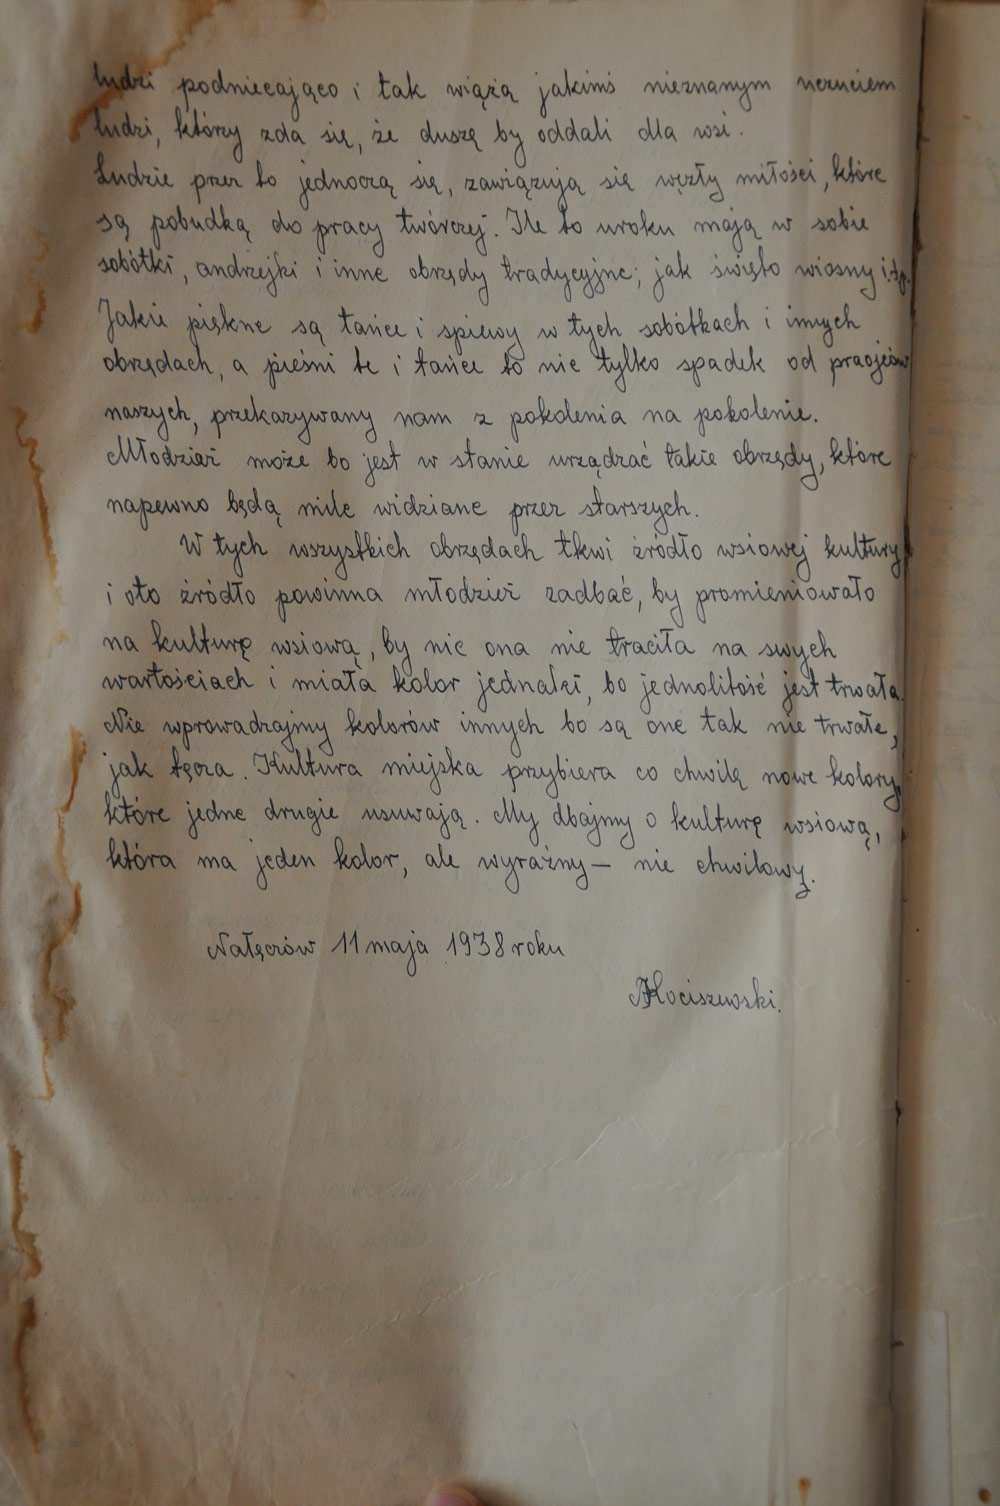 ludzi podniecająco i tak wiążą jakimś nieznanym uczuciem
ludzi, którzy zda się, że duszę by oddali dla wsi.
Ludzie przez to jednoczą się, zawiązują się węzły miłości, które
są pobudką do pracy twórczej. Ile to uroku mają w sobie
sobótki, andrzejki i inne obrzędy tradycyjne; jak święto wiosny i.t.p.
Jakie piękne są tańce i śpiewy w tych sobótkach i innych
obrzędach, a pieśni te i tańce to nie tylko spadek od praojców
naszych, przekazywany nam z pokolenia na pokolenie.
Młodzież może bo jest w stanie urządzać takie obrzędy, które
napewno będą mile widziane przez starszych.
W tych wszystkich obrzędach tkwi źródło wsiowej kultury
i oto źródło powinna młodzież zadbać, by promieniowało
na kulturę wsiową, by nic ona nie traciła na swych
wartościach i miała kolor jednaki, bo jednolitość jest trwała.
Nie wprowadzajmy kolorów innych bo są one tak nie trwałe,
jak tęcza. Kultura miejska przybiera co chwilę nowe kolory,
które jedne drugie usuwają. My dbajmy o kulturę wsiową,
która ma jeden kolor, ale wyraźny — nie chwilowy.
Nałęczów 11 maja 1938 roku
Kociszewski.